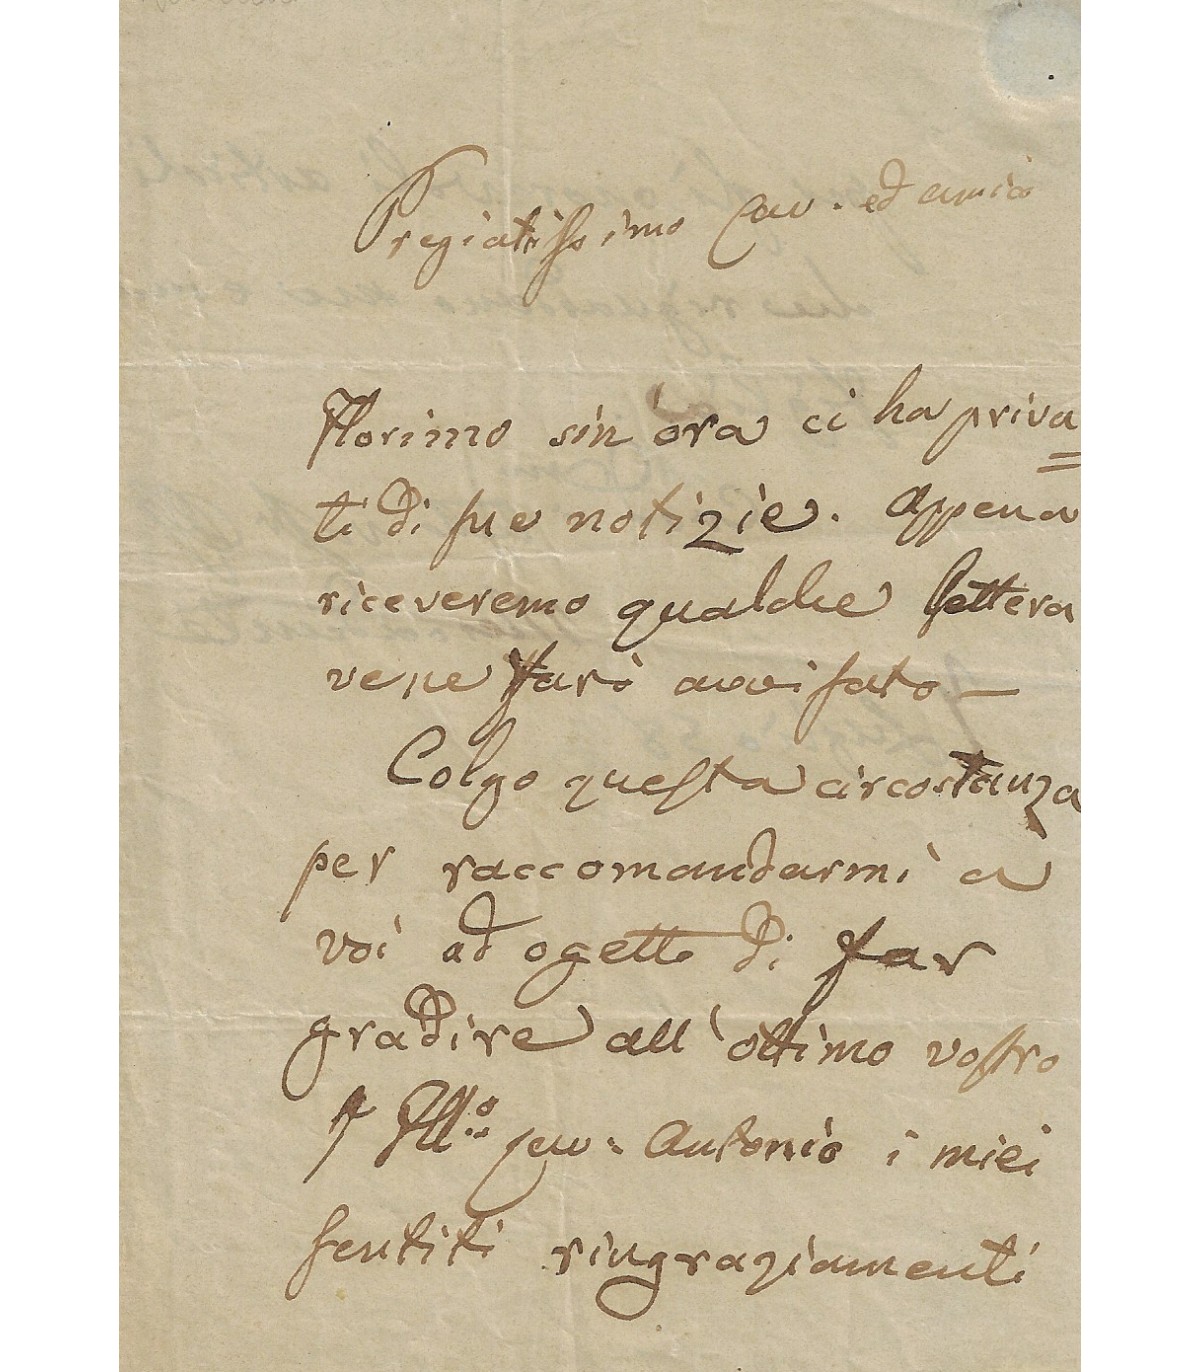 Pregiatissimo Cav. ed amico
Florimo sin'ora ci ha priva=
ti di sue notizie. Appena
riceveremo qualche lettera
vene farò avvisato—
Colgo questa circostanza
per raccomandarmi a
voi ad ogetto di far
gradire all'ottimo vostro
Ill.o Antonio i miei
sentiti ringraziamenti